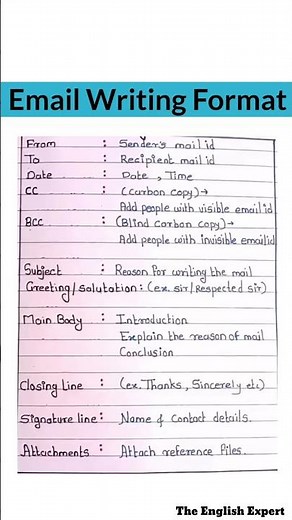 Email Writing Format
From : Sender's mail id
To : Recipient mail id
Date : Date, Time
CC : (carbon copy)→
Add people with visible email id
BCC : (Blind Carbon copy)→
Add people with invisible email id
Subject : Reason for writing the mail
Greeting/Solutation: (ex. sir/Respected Sir)
Main Body : Introduction
Explain the reason of mail
Conclusion
Closing Line : (ex. Thanks, Sincerely etc)
Signature line: Name & Contact details.
Attachments : Attach reference Files.
The English Expert